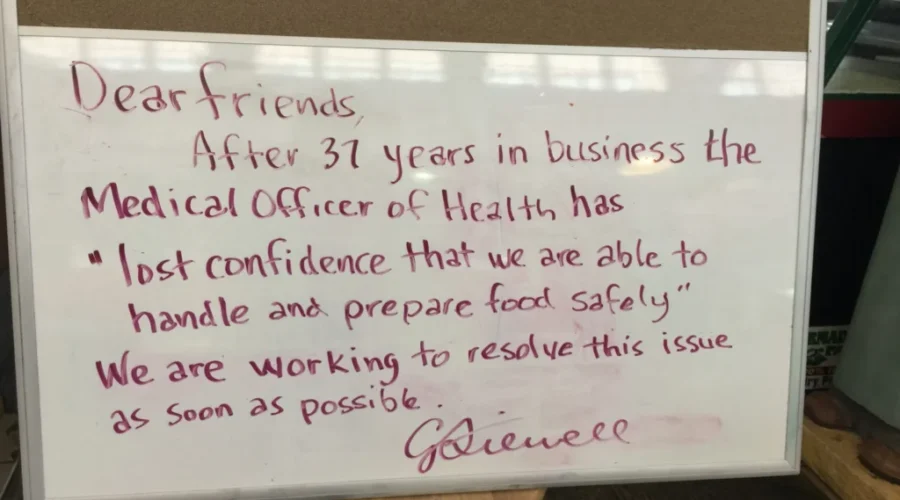 Dear friends,
After 37 years in business the
Medical Officer of Health has
"lost confidence that we are able to
handle and prepare food safely"
We are working to resolve this issue
as soon as possible.